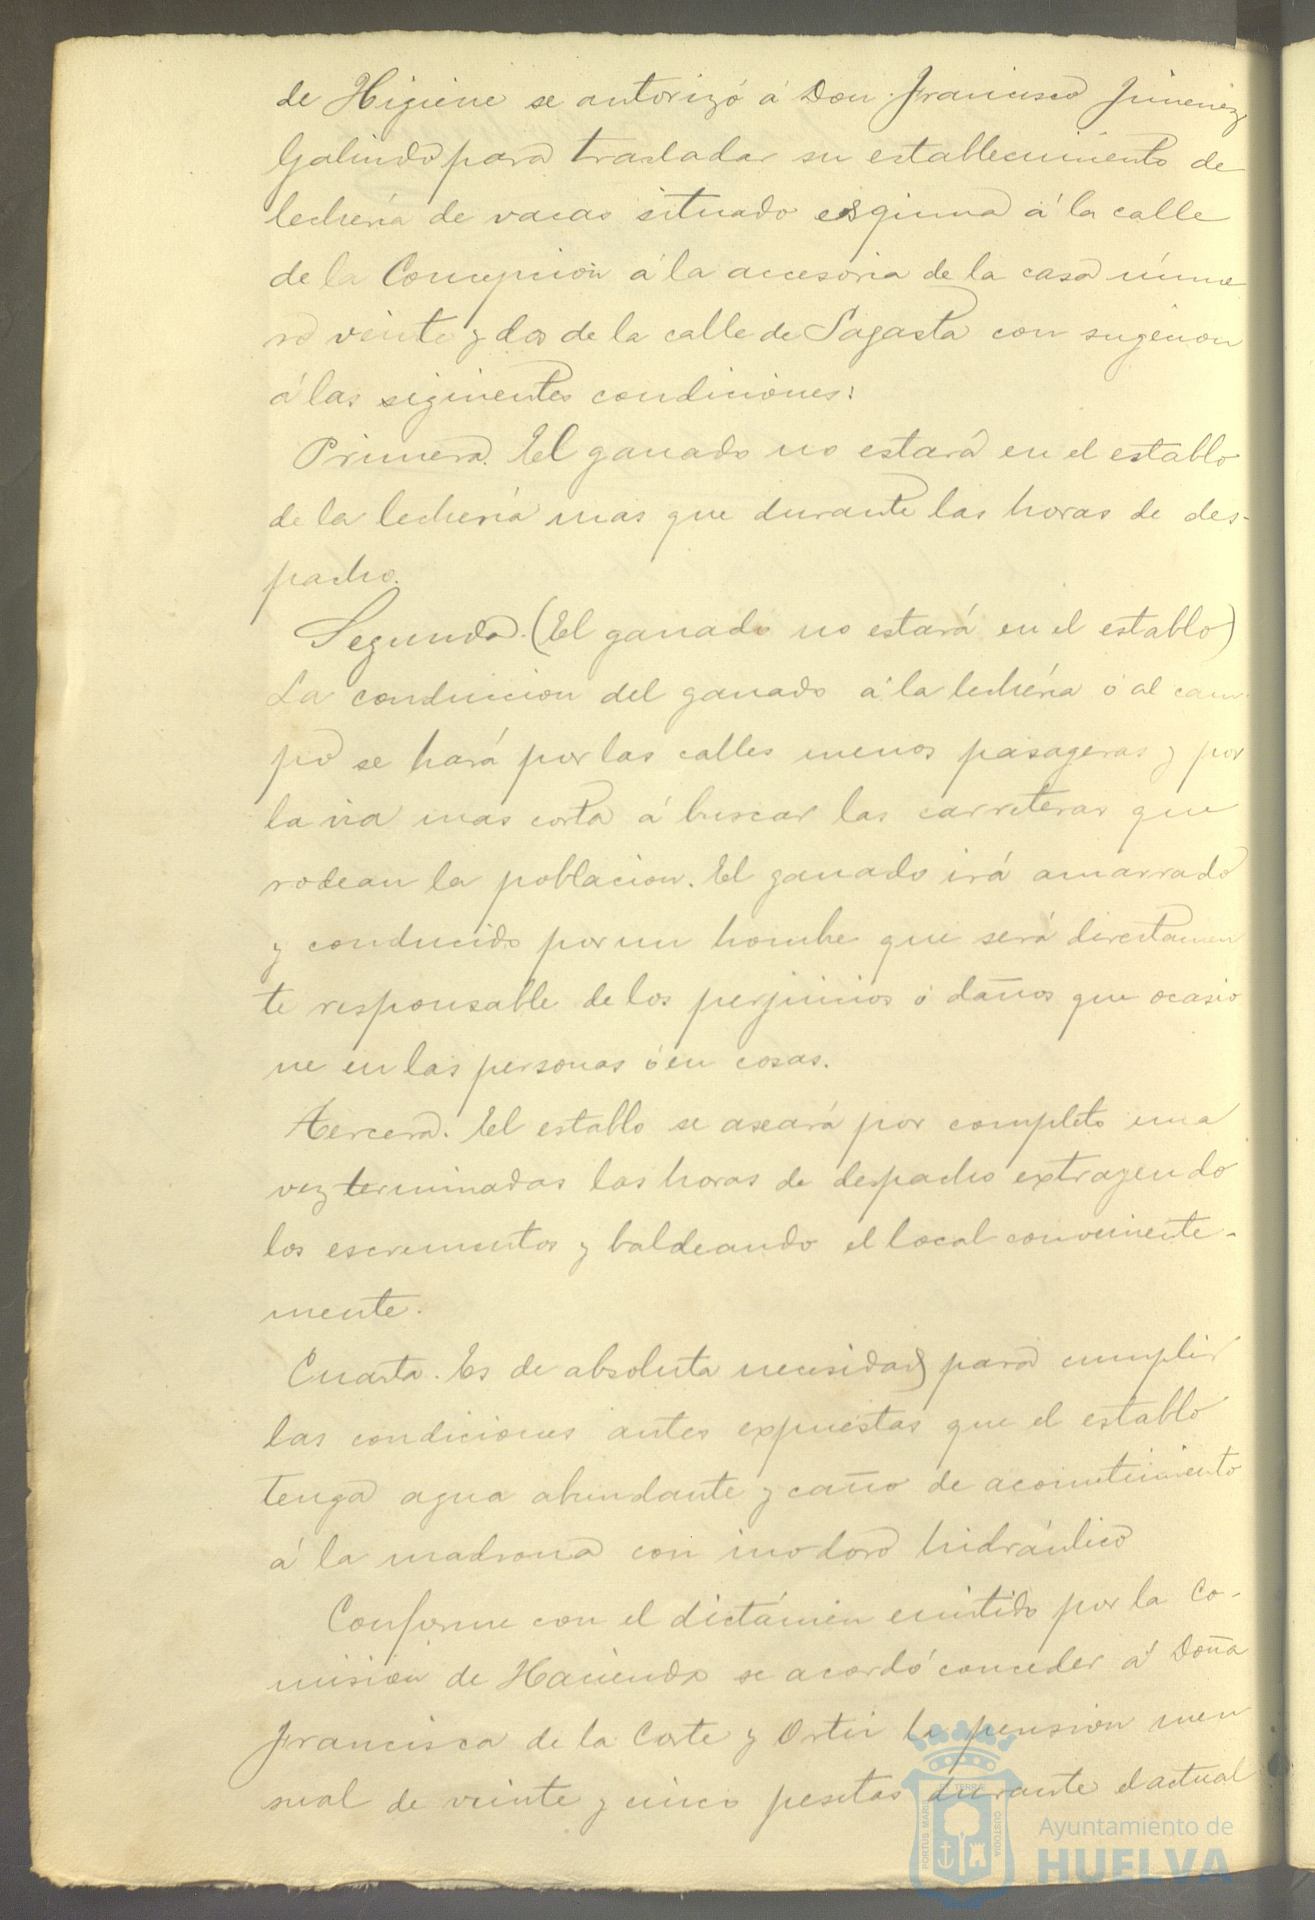 de Higiene se autorizó á Don Francisco Jimenez
Galindo para trasladar su establecimiento de
lechería de vacas situado esquina á la calle
de la Concepción á la accesoria de la casa núme
ro veinte y dos de la calle de Sagasta con sugecion
á las siguientes condiciones:
Primera. El ganado no estará en el establo
de la lechería mas que durante las horas de des-
pacho.
Segunda. (El ganado no estará en el establo)
La conduccion del ganado á la lechería ó al cam-
po se hará por las calles menos pasageras y por
la via mas corta á buscar las carreteras que
rodean la poblacion. El ganado irá amarrado
y conducido por un hombre que será directamen
te responsable de los perjuicios ó daños que ocasio
ne en las personas ó en cosas.
Tercera. El establo se aseará por completo una
vez terminadas las horas de despacho extrayendo
los escrementos y baldeando el local conveniente-
mente.
Cuarta. Es de absoluta necesidad para cumplir
las condiciones antes expuestas que el establo
tenga agua abundante y caño de acometimiento
á la madrona con inodoro hidráulico
Conforme con el dictámen emitido por la Co-
mision de Hacienda se acordó conceder á Doña
Francisca de la Corte y Ortiz la pension men
sual de veinte y cinco pesetas durante el actual
PORTUS MARIS TERRAE CUSTODIA
Ayuntamiento de
HUELVA